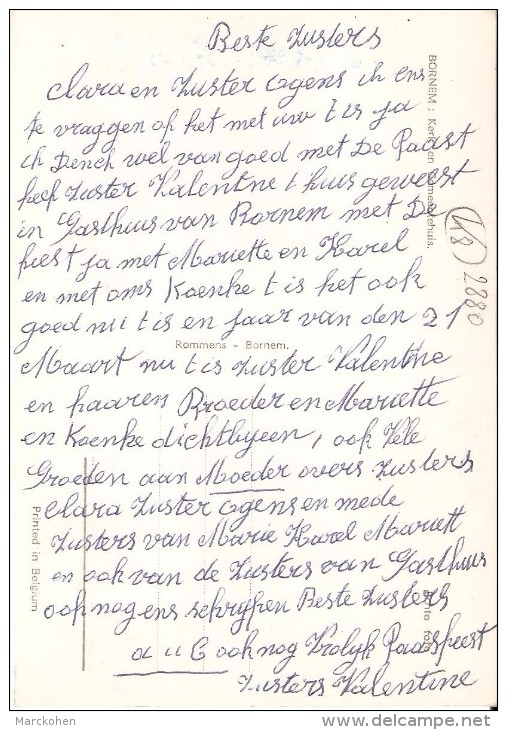 Beste Zusters
Clara en Zuster Agens ik ens
te vraggen of het met uw t is ja
ik Denck wel van goed met De Paast
heef Zuster Valentne t huis geweest
in Gasthuus van Bornem met De
fiest ja met Mariette en Karel
en met oms Koenke t is het ook
goed nu t is en jaar van den 21
Maart nu t is Zuster Valentine
en haaren Broeder en Mariette
en Koenke dichtbyeen, ook Vele
Groeden aan Moeder overs Zusters
Clara Zuster Agens en mede
Zusters van Marie Karel Mariett
en ook van de Zusters van Gasthuus
ook nog ens schryfen Beste Zusters
a u b ook nog Vrolyk Paasfeest
Zusters Valentine
BORNEM : Kerk en Gemeentehuis.
(48) 2880
Rommens - Bornem.
Printed in Belgium
foto
Marckohen
www.delcampe.net